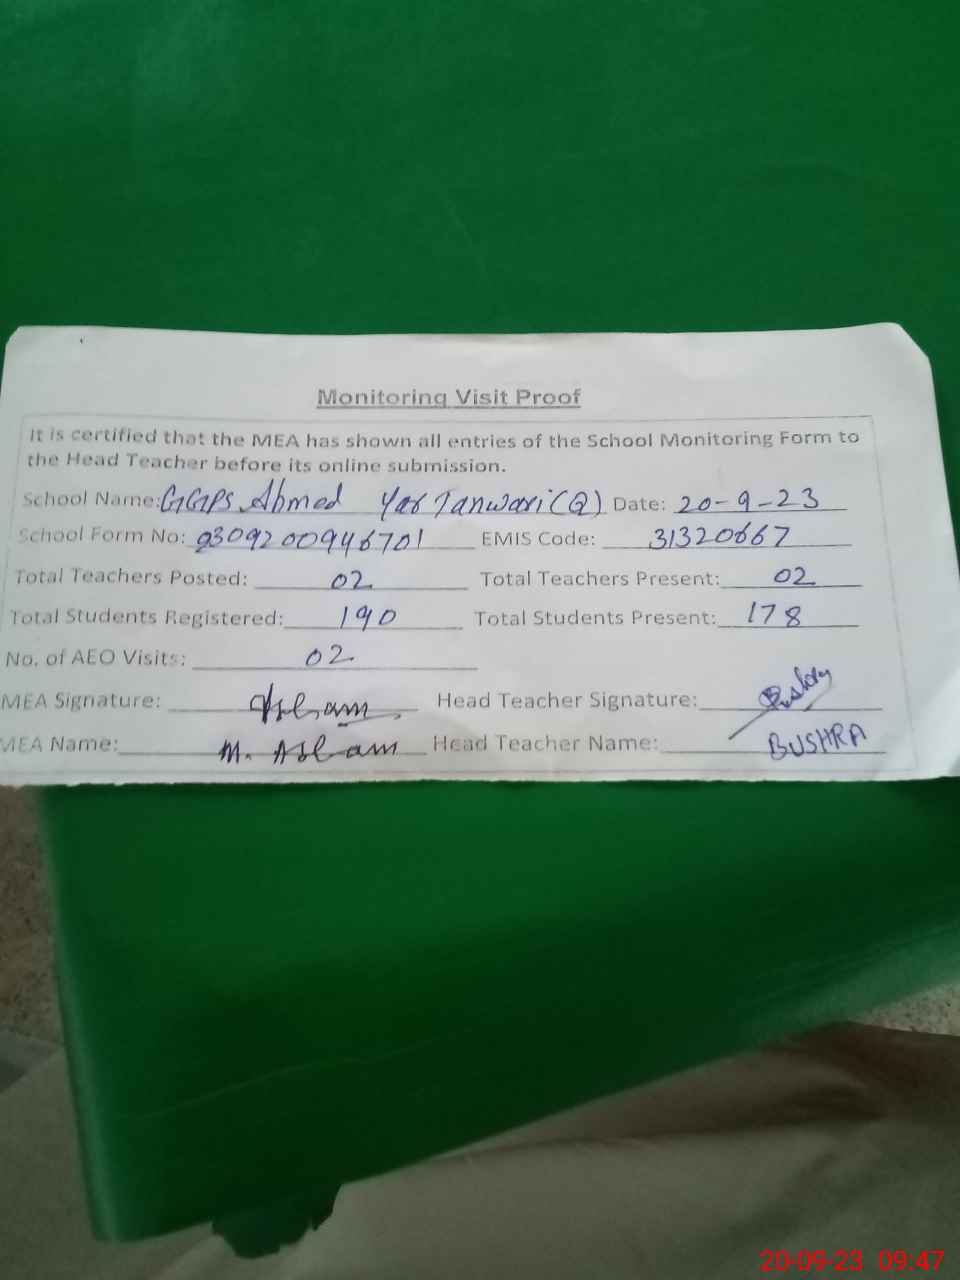 Monitoring Visit Proof
It is certified that the MEA has shown all entries of the School Monitoring Form to
the Head Teacher before its online submission.
School Name: GGPS Ahmed Yar Tanwari (Q) Date: 20-9-23
School Form No: 9309200946701 EMIS Code: 31320667
Total Teachers Posted: 02 Total Teachers Present: 02
Total Students Registered: 190 Total Students Present: 178
No. of AEO Visits: 02
MEA Signature: Aslam Head Teacher Signature: Bushra
MEA Name: M. Aslam Head Teacher Name: BUSHRA
20-09-23 09:47